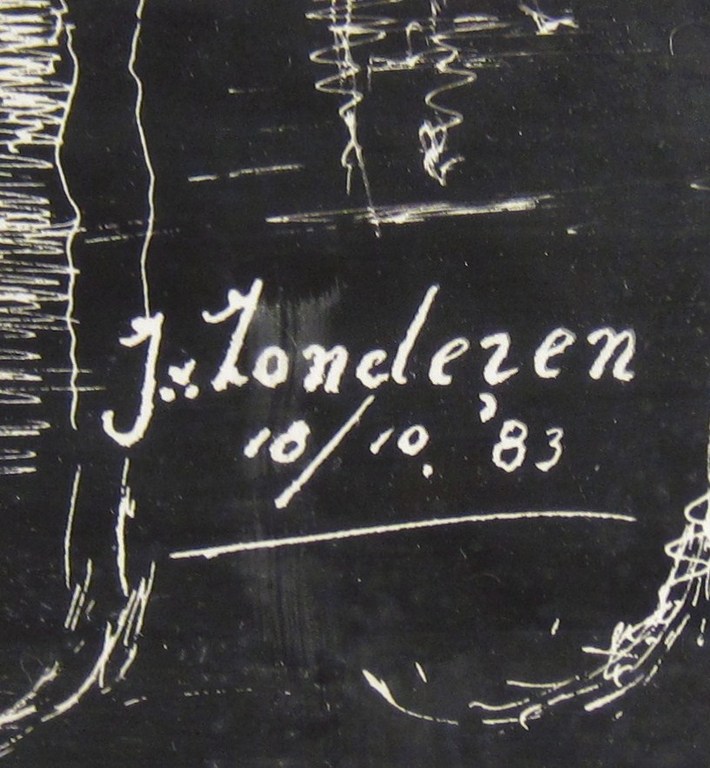 J.v. Zonderen
10/10. '83